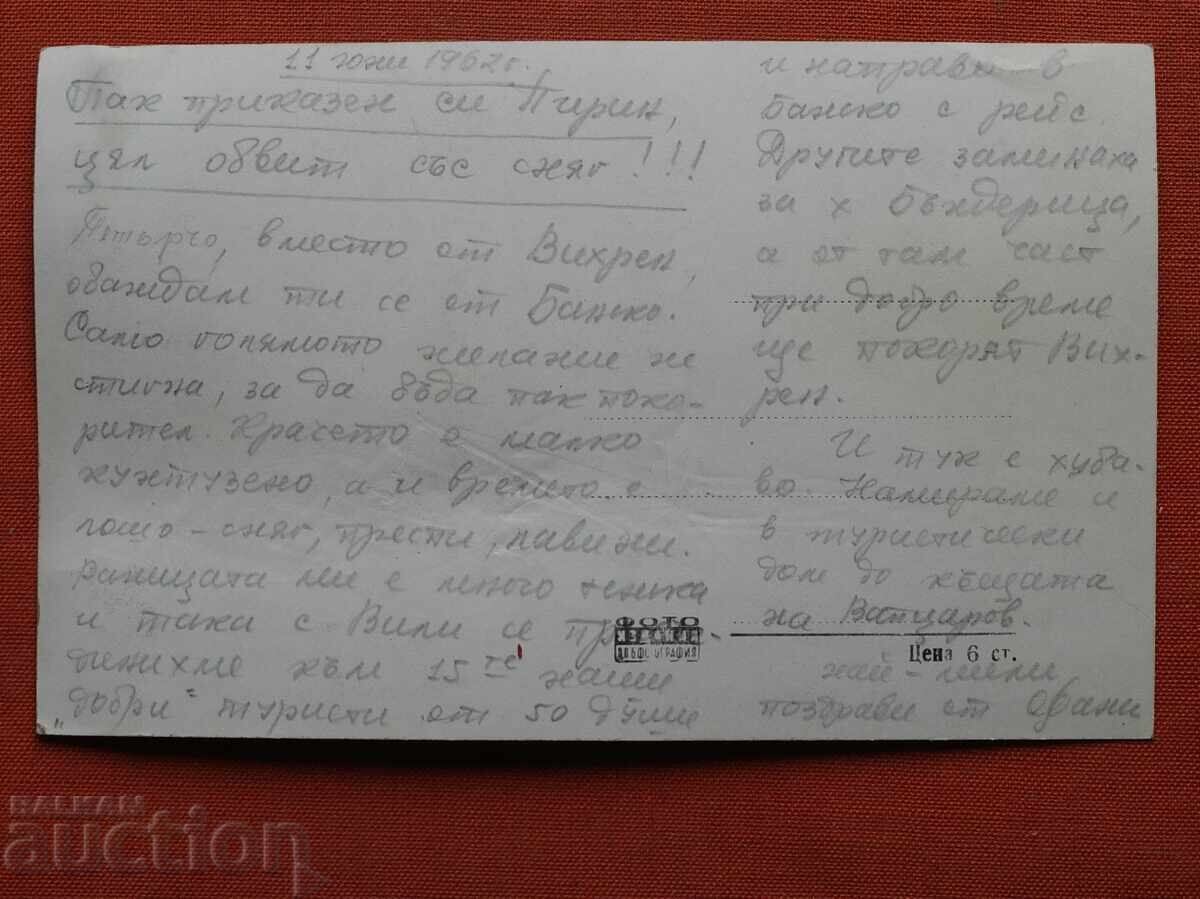 11 юни 1962 г.
Пак приказен си Пирин,
цял обвит със сняг!!!
вместо от Вихрен,
обаждам ти се от Банско.
Само голямото желание не
стигна, за да бъда пак поко-
рител. Крачето е малко
кухтузено, а и времето е
лошо - сняг, преспи, лавини.
Раницата ми е много тежка
и така с Вили се
към 15 те наши
„добри" туристи от 50 души
и направо в
Банско с рейс.
Другите заминаха
за х. Бъндерица,
а от там част
при добро време
ще покорят Вих-
рен.
И тук е хуба-
во. Намираме и
в туристически
дом до къщата
на Вапцаров.
най-мили
поздрави от
ФОТО
Цена 6 ст.
BALKAN
auction